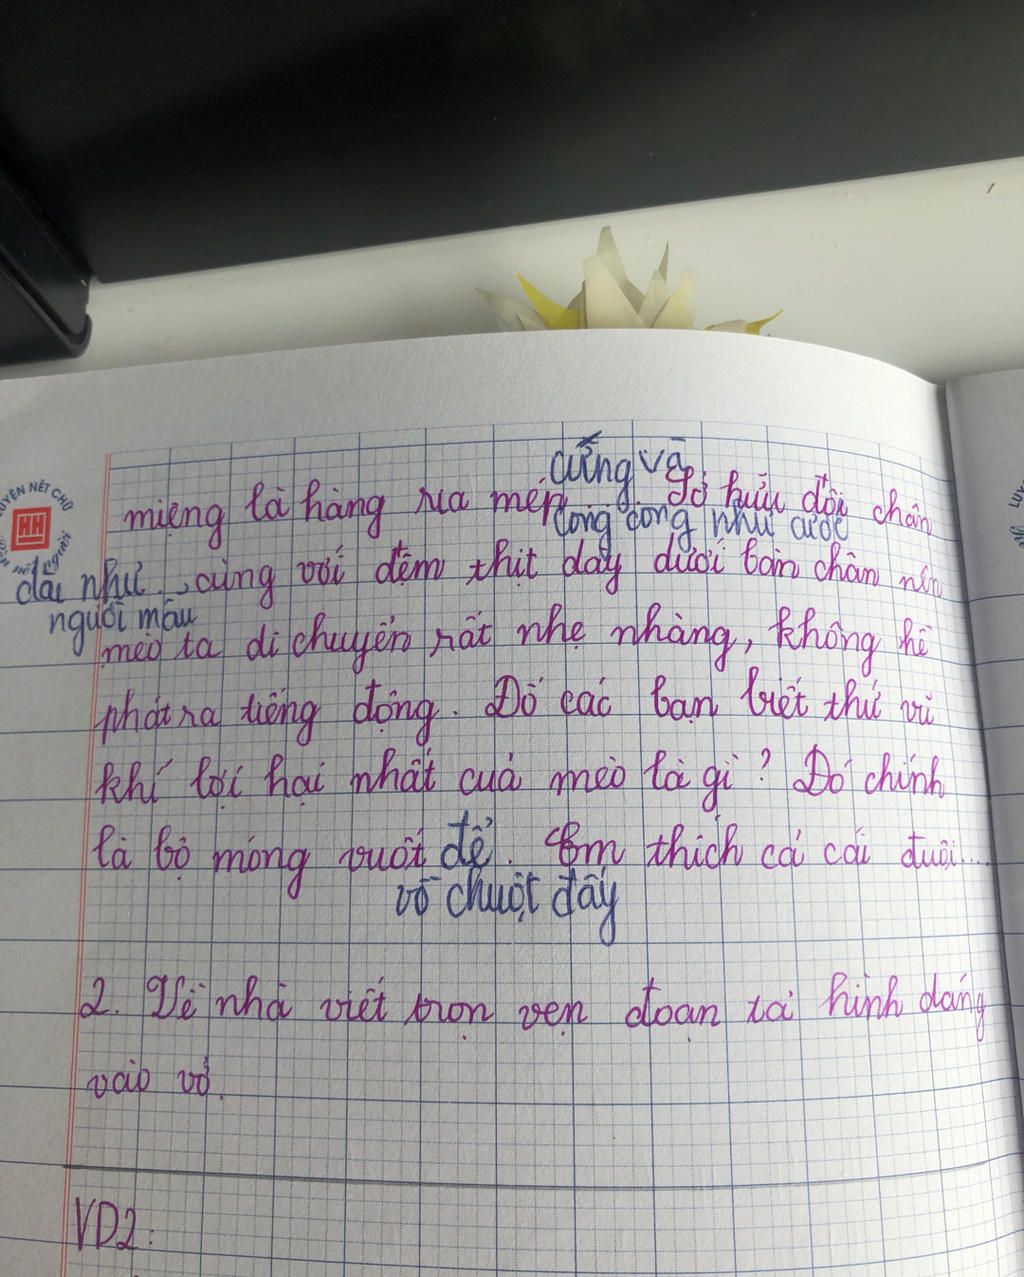 cứng và
miệng là hàng ria mép Sở hữu đôi chân
cong cong như cước
dài như , cùng với đệm thịt dày dưới bàn chân nên
người mẫu
mèo ta di chuyển rất nhẹ nhàng, không hề
phát ra tiếng động. Đố các bạn biết thứ vũ
khí lợi hại nhất của mèo là gì? Đó chính
là bộ móng vuốt để. Em thích cả cái đuôi...
vồ chuột đấy
2. Về nhà viết trọn vẹn đoạn tả hình dáng
vào vở.
VD2:
LUYỆN NÉT CHỮ
HH